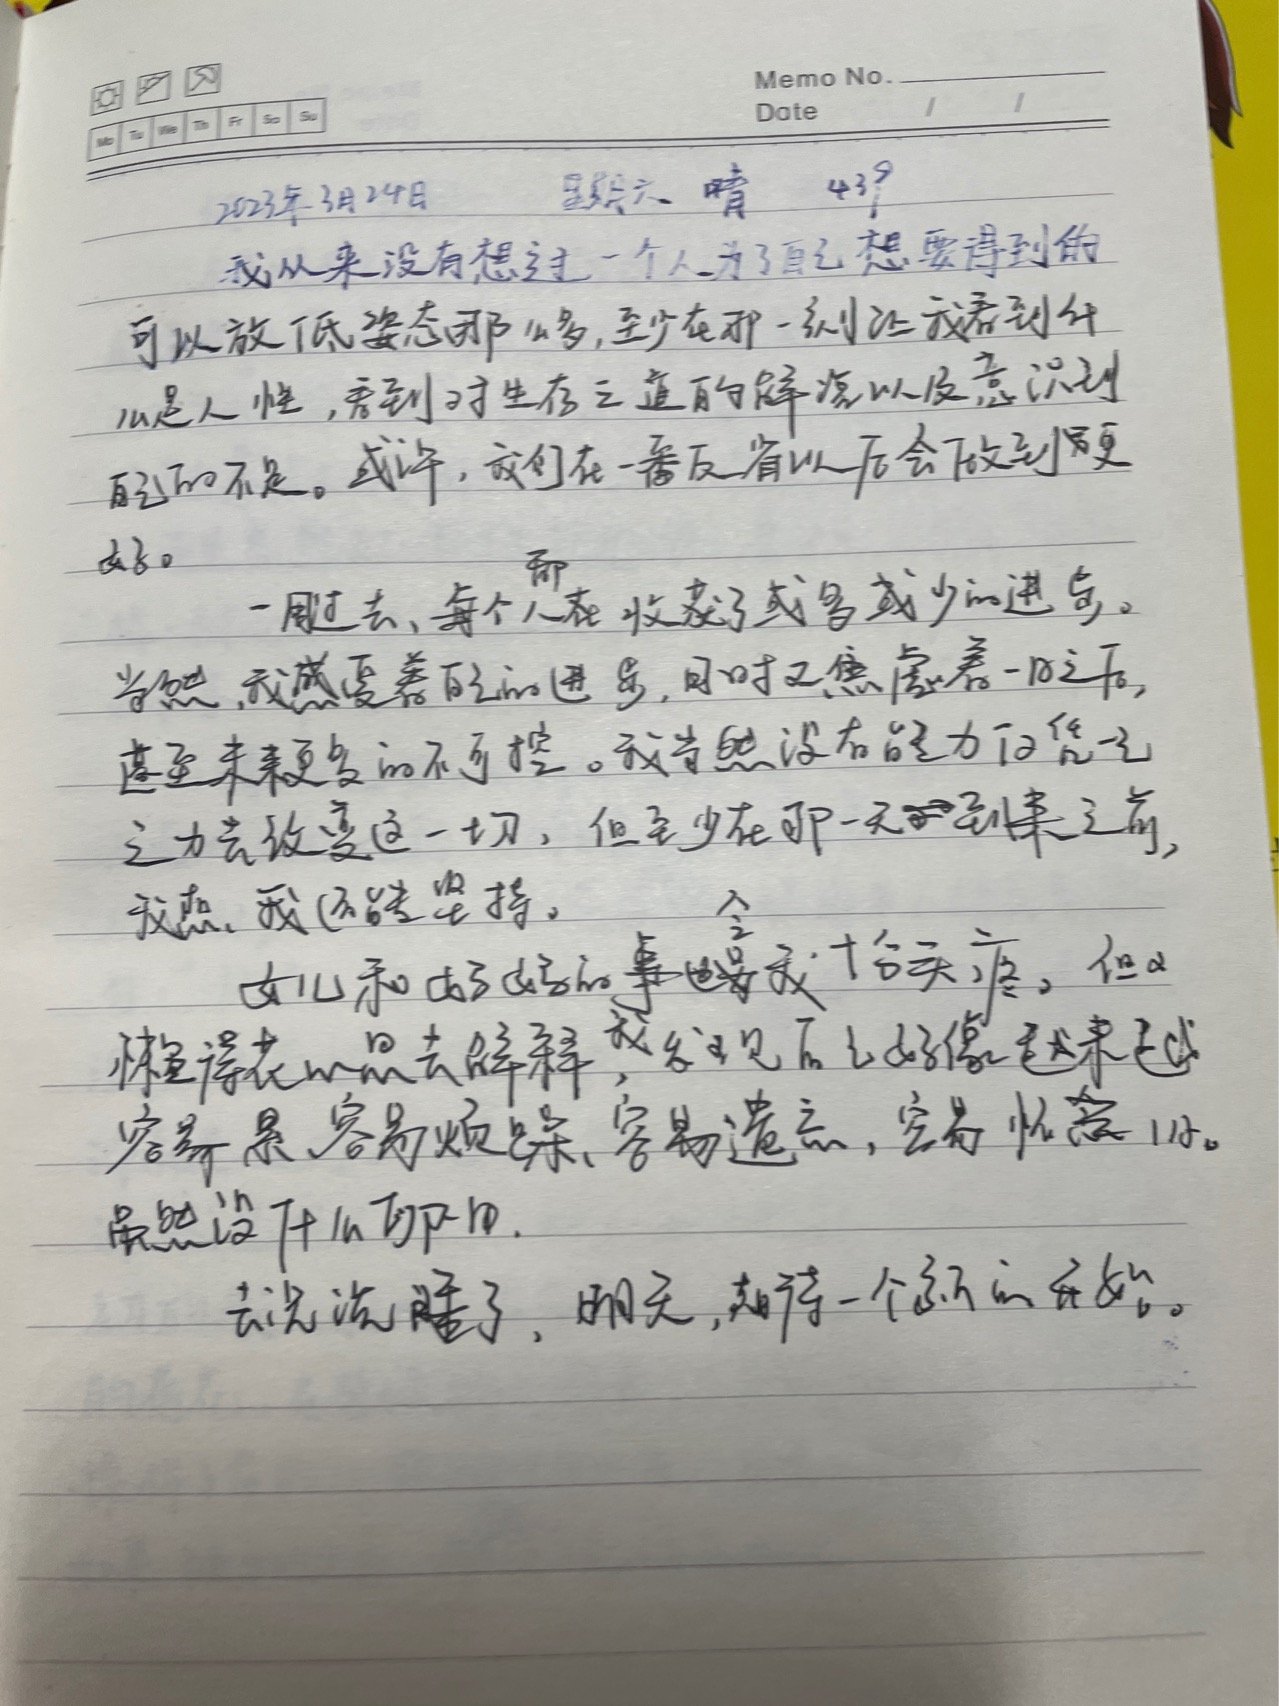 Memo No.
Date / /
Mo Tu We Th Fr Sa Su
2023年3月24日 星期六 晴 439
我从来没有想过一个人为了自己想要得到的
可以放低姿态那么多,至少在那一刻让我看到什
么是人性,看到对生存之道的解读以及意识到
自己的不足。或许,我们在一番反省以后会做到更
好。
一周过去、每个人都在收获了或多或少的进步。
当然,我感受着自己的进步,同时又焦虑着一日之后,
甚至未来更多的不可控。我当然没有能力仅凭一己
之力去改变这一切,但至少在那一天到来之前,
我想、我还能坚持。
女儿和好好的事会令我十分头疼。但又
懒得花心思去解释,我发现自己好像越来越
容易累、容易烦躁、容易遗忘,容易怀旧。
虽然没什么卵用.
去洗洗睡了,明天,期待一个新的开始。